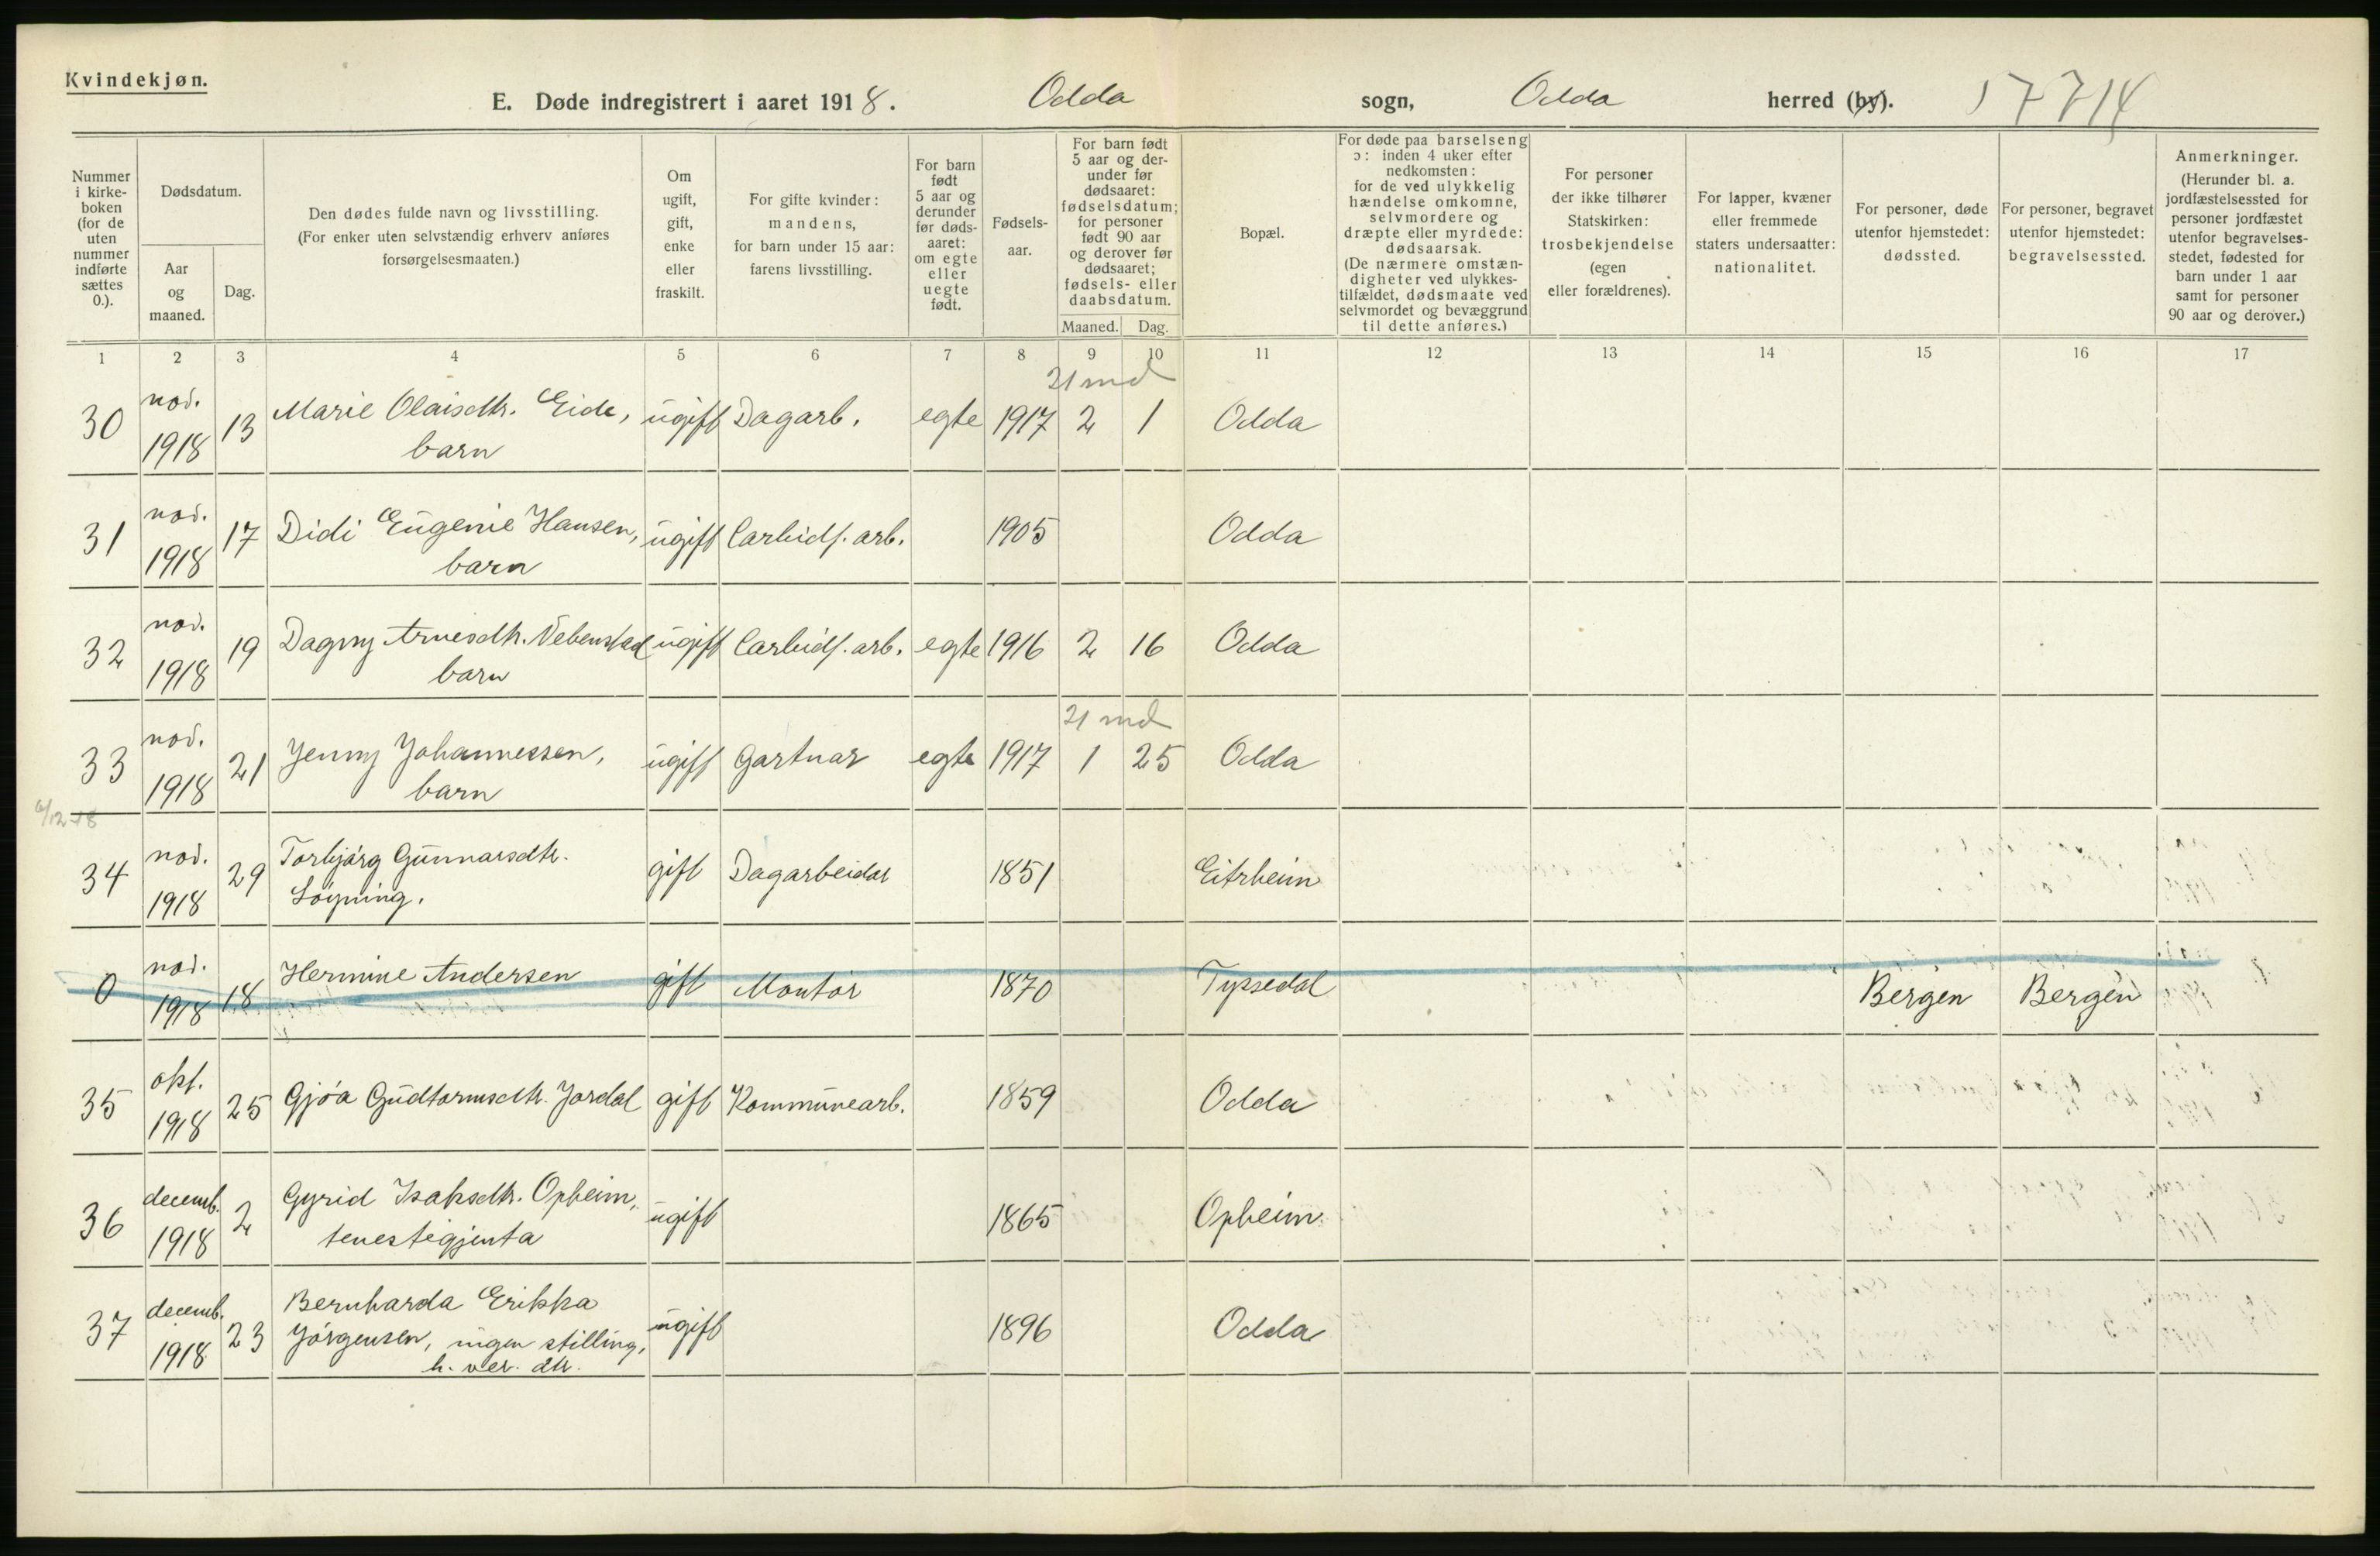 Kvindekjøn.
E. Døde indregistrert i aaret 1918. Odda sogn, Odda herred (by). 17714
Nummer i kirkeboken (for de uten nummer indførte sættes 0.).
Dødsdatum.
Aar og maaned.
Dag.
Den dødes fulde navn og livsstilling.
(For enker uten selvstændig erhverv anføres
forsørgelsesmaaten.)
Om ugift, gift, enke eller fraskilt.
For gifte kvinder:
mandens,
for barn under 15 aar:
farens livsstilling.
For barn født 5 aar og derunder før dødsaaret: om egte eller uegte født.
Fødselsaar.
For barn født 5 aar og derunder før dødsaaret: fødselsdatum; for personer født 90 aar og derover før dødsaaret; fødsels- eller daabsdatum.
Maaned. Dag.
Bopæl.
For døde paa barselseng
ɔ: inden 4 uker efter
nedkomsten:
for de ved ulykkelig
hændelse omkomne,
selvmordere og
dræpte eller myrdede:
dødsaarsak.
(De nærmere omstæn-
digheter ved ulykkes-
tilfældet, dødsmaate ved
selvmordet og bevæggrund
til dette anføres.)
For personer
der ikke tilhører
Statskirken:
trosbekjendelse
(egen
eller forældrenes).
For lapper, kvæner
eller fremmede
staters undersaatter:
nationalitet.
For personer, døde
utenfor hjemstedet:
dødssted.
For personer, begravet
utenfor hjemstedet:
begravelsessted.
Anmerkninger.
(Herunder bl. a.
jordfæstelsessted for
personer jordfæstet
utenfor begravelses-
stedet, fødested for
barn under 1 aar
samt for personer
90 aar og derover.)
1 2 3 4 5 6 7 8 9 10 11 12 13 14 15 16 17
21 md
30 nov. 1918 13 Marie Olaisdtr. Eide, barn ugift Dagarb. egte 1917 2 1 Odda
31 nov. 1918 17 Didi Eugenie Hansen, barn ugift Carbidf. arb. 1905 Odda
32 nov. 1918 19 Dagny Arnesdtr. barn ugift Carbidf. arb. egte 1916 2 16 Odda
21 md
33 nov. 1918 21 Jenny Johannessen, barn ugift Gartnar egte 1917 1 25 Odda
6/12-18
34 nov. 1918 29 Torbjørg Gunnarsdtr. Løyning. gift Dagarbeidar 1851 Eitrheim
0 nov. 1918 18 Hermine Andersen gift Montør 1870 Tyssedal Bergen Bergen
35 okt. 1918 25 Gjøa Gudtormsdtr. Jordal gift Kommunearb. 1859 Odda
36 decemb. 1918 2 Gyrid Isaksdtr. Opheim, tenestegjenta ugift 1865 Opheim
37 decemb. 1918 23 Bernharda Erikka Jørgensen, ingen stilling, h. ver. dtr. ugift 1896 Odda